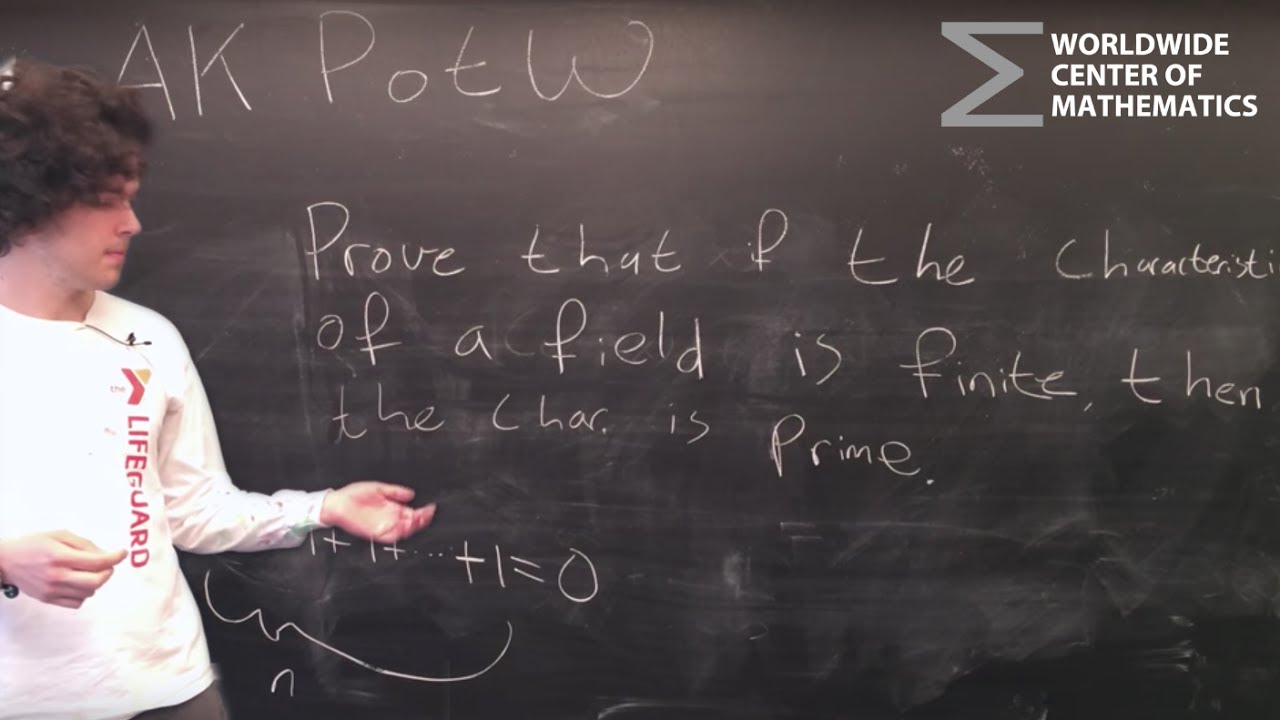 AK PotW
WORLDWIDE
CENTER OF
MATHEMATICS
Prove that if the Characteristi
of a field is finite, then
the Char. is Prime.
the
LIFEGUARD
1+1+....+1=0
n